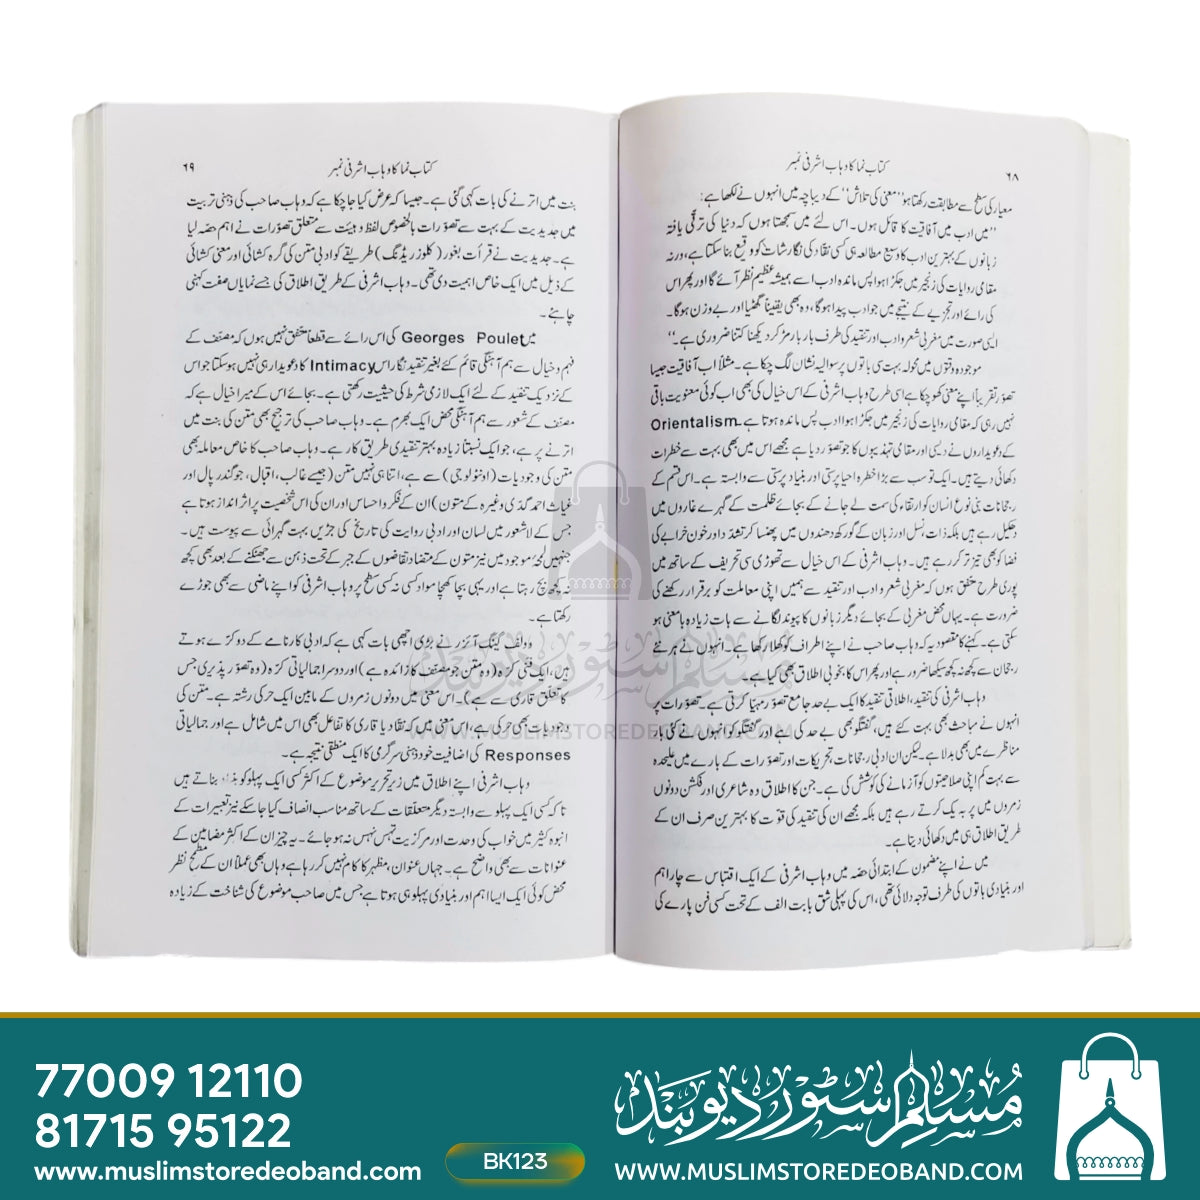 ۶۸
کتاب نما کا وہاب اشرفی نمبر
معیار کی سطح سے مطابقت رکھتا ہو ’’معنی کی تلاش‘‘ کے دیباچہ میں انہوں نے لکھا ہے:
’’میں ادب میں آفاقیت کا قائل ہوں۔ اس لئے میں سمجھتا ہوں کہ دنیا کی ترقی یافتہ
زبانوں کے بہترین ادب کا وسیع مطالعہ ہی کسی نقاد کی نگارشات کو وقیع بنا سکتا ہے، ورنہ
مقامی روایات کی زنجیر میں جکڑا ہوا پس ماندہ ادب اسے ہمیشہ عظیم نظر آئے گا اور پھر اس
کی رائے اور تجزیے کے نتیجے میں جو ادب پیدا ہوگا، وہ بھی یقیناً گھٹیا اور بے وزن ہوگا۔
ایسی صورت میں مغربی شعر و ادب اور تنقید کی طرف بار بار مڑ کر دیکھنا کتنا ضروری ہے۔‘‘
موجودہ وقتوں میں محولہ بہت سی باتوں پر سوالیہ نشان لگ چکا ہے۔ مثلاً اب آفاقیت جیسا
تصور تقریباً اپنے معنی کھو چکا ہے اسی طرح وہاب اشرفی کے اس خیال کی بھی اب کوئی معنویت باقی
نہیں رہی کہ مقامی روایات کی زنجیر میں جکڑا ہوا ادب پس ماندہ ہوتا ہے۔ Orientalism
کے دعویداروں نے دیسی اور مقامی تہذیبوں کا جو تصور دیا ہے مجھے اس میں بھی بہت سے خطرات
دکھائی دیتے ہیں۔ ایک تو سب سے بڑا خطرہ احیا پرستی اور بنیاد پرستی سے وابستہ ہے۔ اس قسم کے
رجحانات بنی نوع انسان کو ارتقاء کی سمت لے جانے کے بجائے ظلمت کے گہرے غاروں میں
دھکیل رہے ہیں بلکہ ذات، نسل اور زبان کے گورکھ دھندوں میں پھنسا کر تشدد اور خون خرابے کی
فضا کو بھی تیز تر کر رہے ہیں۔ وہاب اشرفی کے اس خیال سے تھوڑی سی تحریف کے ساتھ میں
پوری طرح متفق ہوں کہ مغربی شعر و ادب اور تنقید سے ہمیں اپنی معاملت کو برقرار رکھنے کی
ضرورت ہے۔ یہاں محض مغربی کے بجائے دیگر زبانوں کا پیوند لگانے سے بات زیادہ بامعنی ہو
سکتی ہے۔ کہنے کا مقصود یہ کہ وہاب صاحب نے اپنے اطراف کو کھلا رکھا ہے۔ انہوں نے ہر نئے
رجحان سے کچھ نہ کچھ سیکھا ضرور ہے اور پھر اس کا بخوبی اطلاق بھی کیا ہے۔
وہاب اشرفی کی تنقید، اطلاقی تنقید کا ایک بے حد جامع تصور مہیا کرتی ہے۔ تصورات پر
انہوں نے مباحث بھی بہت کئے ہیں، گفتگو بھی بے حد کی ہے اور گفتگو کو انہوں نے کئی بار
مناظرے میں بھی بدلا ہے۔ لیکن ان ادبی رجحانات تحریکات اور تصورات کے بارے میں علیحدہ
سے بہت کم اپنی صلاحیتوں کو آزمانے کی کوشش کی ہے۔ جن کا اطلاق وہ شاعری اور فکشن دونوں
زمروں میں بہ یک کرتے رہے ہیں بلکہ مجھے ان کی تنقید کی قوت کا بہترین صرف ان کے
طریق اطلاق ہی میں دکھائی دیتا ہے۔
میں نے اپنے مضمون کے ابتدائی حصہ میں وہاب اشرفی کے ایک اقتباس سے چار اہم
اور بنیادی باتوں کی طرف توجہ دلائی تھی، اس کی پہلی شق بابت الف کے تحت کسی فن پارے کی
کتاب نما کا وہاب اشرفی نمبر
۶۹
بنت میں اترنے کی بات کہی گئی ہے۔ جیسا کہ عرض کیا جا چکا ہے کہ وہاب صاحب کی ذہنی تربیت
میں جدیدیت کے بہت سے تصورات بالخصوص لفظ و ہیئت سے متعلق تصورات نے اہم حصہ لیا
ہے۔ جدیدیت نے قرأت بغور (کلوز ریڈنگ) طریقے کو ادبی متن کی گرہ کشائی اور معنی کشائی
کے ذیل میں ایک خاص اہمیت دی تھی۔ وہاب اشرفی کے طریق اطلاق کی جسے نمایاں صفت کہنی
چاہئے۔
میں Georges Poulet کی اس رائے سے قطعاً متفق نہیں ہوں کہ مصنف کے
فہم و خیال سے ہم آہنگی قائم کئے بغیر تنقید نگار اس Intimacy کا دعویدار ہی نہیں ہو سکتا جو اس
کے نزدیک تنقید کے لئے ایک لازمی شرط کی حیثیت رکھتی ہے۔ بجائے اس کے میرا خیال ہے کہ
مصنف کے شعور سے ہم آہنگی محض ایک بھرم ہے۔ وہاب صاحب کی ترجیح بھی متن کی بنت میں
اترنے پر ہے، جو ایک نسبتاً زیادہ بہتر تنقیدی طریق کار ہے۔ وہاب صاحب کا خاص معاملہ بھی
متن کی وجودیات (اونٹولوجی) سے ہے، اتنا ہی نہیں متن (جیسے غالب، اقبال، جوگندر پال اور
غیاث احمد گدی وغیرہ کے متون) ان کے فکر و احساس اور ان کی اس شخصیت پر اثر انداز ہوتا ہے
جس کے لاشعور میں لسان اور ادبی روایت کی تاریخ کی جڑیں بہت گہرائی سے پیوست ہیں۔
جنہیں لمحۂ موجود میں نیز متون کے متضاد تقاضوں کے جبر کے تحت ذہن سے جھٹکنے کے بعد بھی کچھ
نہ کچھ بچ رہتا ہے اور یہی بچا کھچا مواد کسی نہ کسی سطح پر وہاب اشرفی کو اپنے ماضی سے بھی جوڑے
رکھتا ہے۔
وولف گینگ آئزر نے بڑی اچھی بات کہی ہے کہ ادبی کارنامے کے دو کرّے ہوتے
ہیں، ایک فنی کرہ (وہ متن جو مصنف کا زائدہ ہے) اور دوسرا جمالیاتی کرہ (وہ تصور پذیری جس
کا تعلق قاری سے ہے)۔ اس معنی میں دونوں زمروں کے مابین ایک حرکی رشتہ ہے۔ متن کی
وجودیات بھی حرکی ہے، اس معنی میں کہ نقاد یا قاری کا تفاعل بھی اس میں شامل ہے اور جمالیاتی
Responses کی اضافیت خود ذہنی سرگرمی کا ایک منطقی نتیجہ ہے۔
وہاب اشرفی اپنے اطلاق میں زیر تحریر موضوع کے اکثر کسی ایک پہلو کو بنیاد بناتے ہیں
تاکہ کسی ایک پہلو سے وابستہ دیگر متعلقات کے ساتھ مناسب انصاف کیا جا سکے نیز تعبیرات کے
انبوہ کثیر میں خواب کی وحدت اور مرکزیت تہس نہس نہ ہو جائے۔ یہ چیز ان کے اکثر مضامین کے
عنوانات سے بھی واضح ہے۔ جہاں عنوان، مظہر کا کام نہیں کر رہا ہے وہاں بھی عملاً ان کے مطمح نظر
محض کوئی ایک ایسا اہم اور بنیادی پہلو ہی ہوتا ہے جس میں صاحب موضوع کی شناخت کے زیادہ
مسلم سٹور دیوبند
WWW.MUSLIMSTOREDEOBAND.COM
77009 12110
81715 95122
www.muslimstoredeoband.com
BK123
مسلم سٹور دیوبند
WWW.MUSLIMSTOREDEOBAND.COM